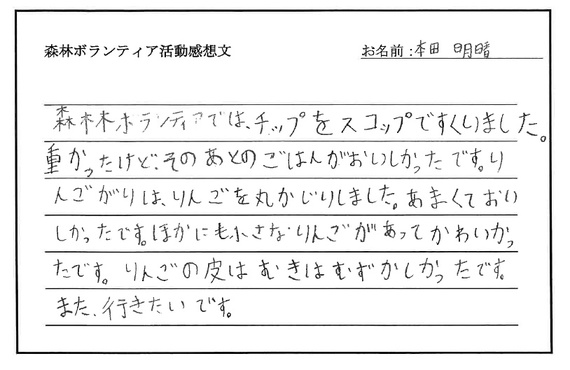 森林ボランティア活動感想文
お名前：本田 明晴
森林ボランティアでは、チップをスコップですくいました。
重かったけど、そのあとのごはんがおいしかったです。り
んごがりは、りんごを丸かじりしました。あまくておい
しかったです。ほかにも小さなりんごがあってかわいかっ
たです。りんごの皮はむきはむずかしかったです。
また、行きたいです。